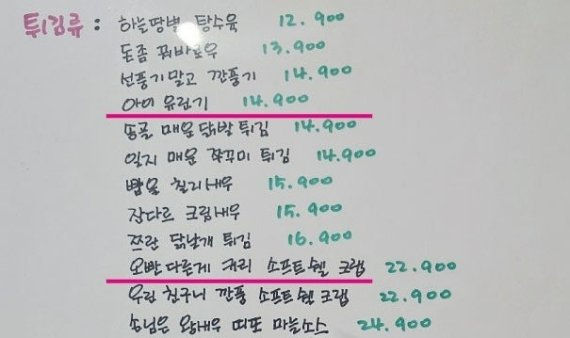 튀김류 : 하늘땅별 탕수육 12.900
돈좀 꿔바로우 13.900
선풍기말고 깐풍기 14.900
아이 유린기 14.900
송골 매운 닭발 튀김 14.900
일지 매운 쭈꾸미 튀김 14.900
빱울 칠리새우 15.900
잔다르 크림새우 15.900
쯔란 닭날개 튀김 16.900
오빤 다른게 커리 소프트 쉘 크랩 22.900
우린 친구니 깐풍 소프트 쉘 크랩 22.900
손님은 왕새우 띠또 마늘소스 24.900